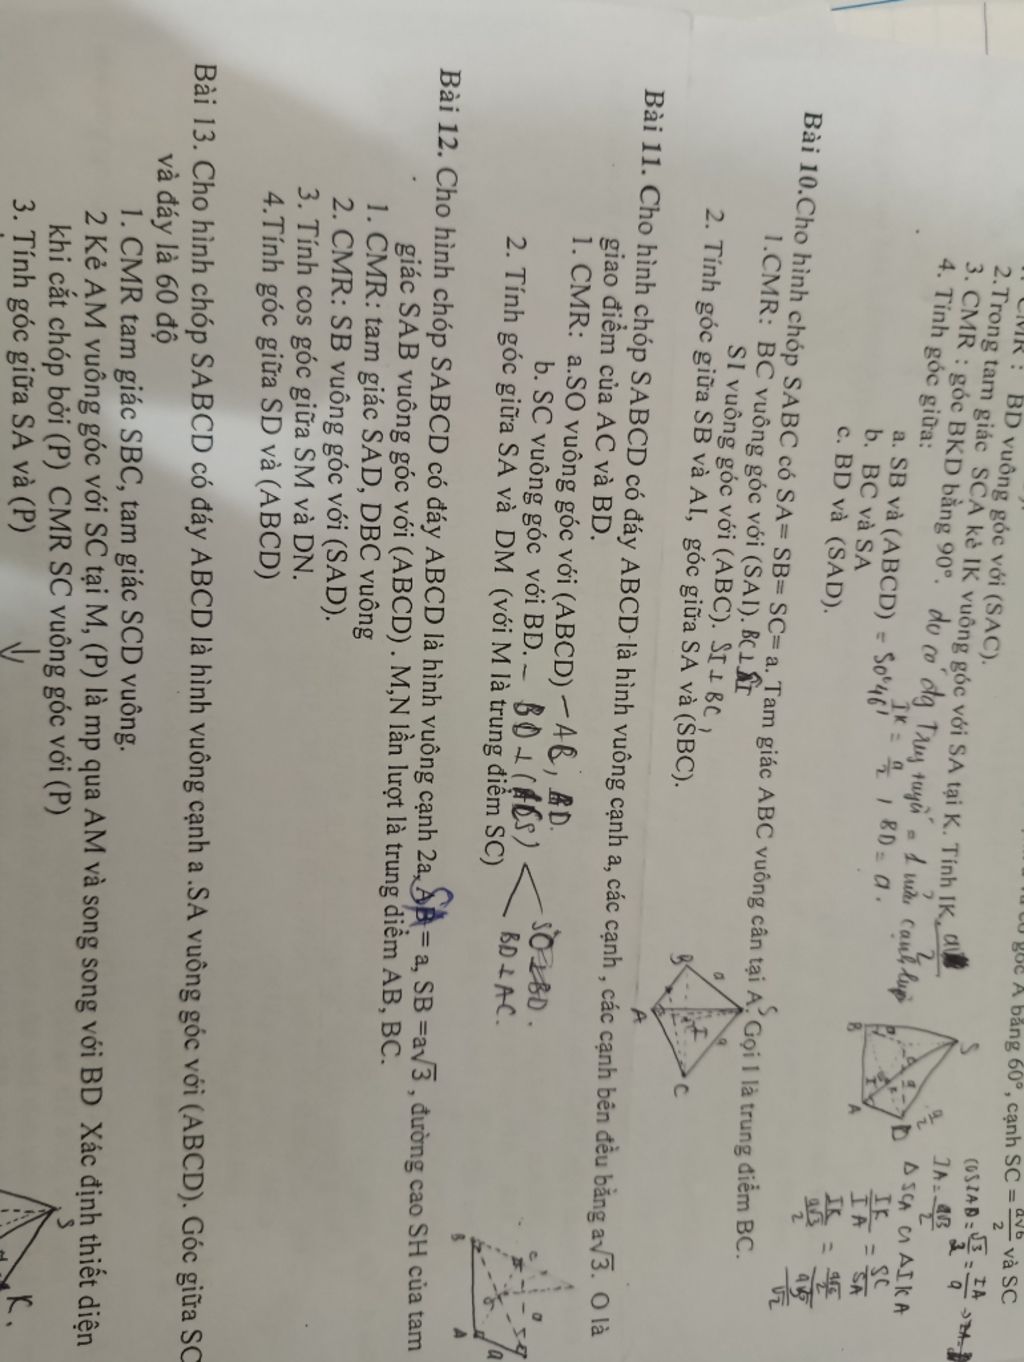 CMR: BD vuông góc với (SAC).
góc A bằng 60°, cạnh SC = a√6/2 và SC
2.Trong tam giác SCA kẻ IK vuông góc với SA tại K. Tính IK.
3. CMR : góc BKD bằng 90°.
4. Tính góc giữa:
a. SB và (ABCD) = 50°46'
b. BC và SA
c. BD và (SAD).
IK = a/2, BD = a.
S
B
A
D
IA = a√3/2
Δ SCA ∽ Δ IKA
IK/IA = SC/SA
Bài 10.Cho hình chóp SABC có SA= SB= SC= a. Tam giác ABC vuông cân tại A. Gọi I là trung điểm BC.
1.CMR: BC vuông góc với (SAI).
SI vuông góc với (ABC). SI ⊥ BC,
2. Tính góc giữa SB và AI, góc giữa SA và (SBC).
S
B
A
C
I
Bài 11. Cho hình chóp SABCD có đáy ABCD là hình vuông cạnh a, các cạnh , các cạnh bên đều bằng a√3. O là
giao điểm của AC và BD.
1. CMR: a.SO vuông góc với (ABCD)
b. SC vuông góc với BD.
SO ⊥ BD.
BD ⊥ AC.
2. Tính góc giữa SA và DM (với M là trung điểm SC)
Bài 12. Cho hình chóp SABCD có đáy ABCD là hình vuông cạnh 2a, SA = a, SB =a√3 , đường cao SH của tam
giác SAB vuông góc với (ABCD) . M,N lần lượt là trung điểm AB, BC.
1. CMR: tam giác SAD, DBC vuông
2. CMR: SB vuông góc với (SAD).
3. Tính cos góc giữa SM và DN.
4.Tính góc giữa SD và (ABCD)
B
A
Bài 13. Cho hình chóp SABCD có đáy ABCD là hình vuông cạnh a .SA vuông góc với (ABCD). Góc giữa SC
và đáy là 60 độ
1. CMR tam giác SBC, tam giác SCD vuông.
2 Kẻ AM vuông góc với SC tại M, (P) là mp qua AM và song song với BD Xác định thiết diện
khi cắt chóp bởi (P) CMR SC vuông góc với (P)
3. Tính góc giữa SA và (P)
S
K.